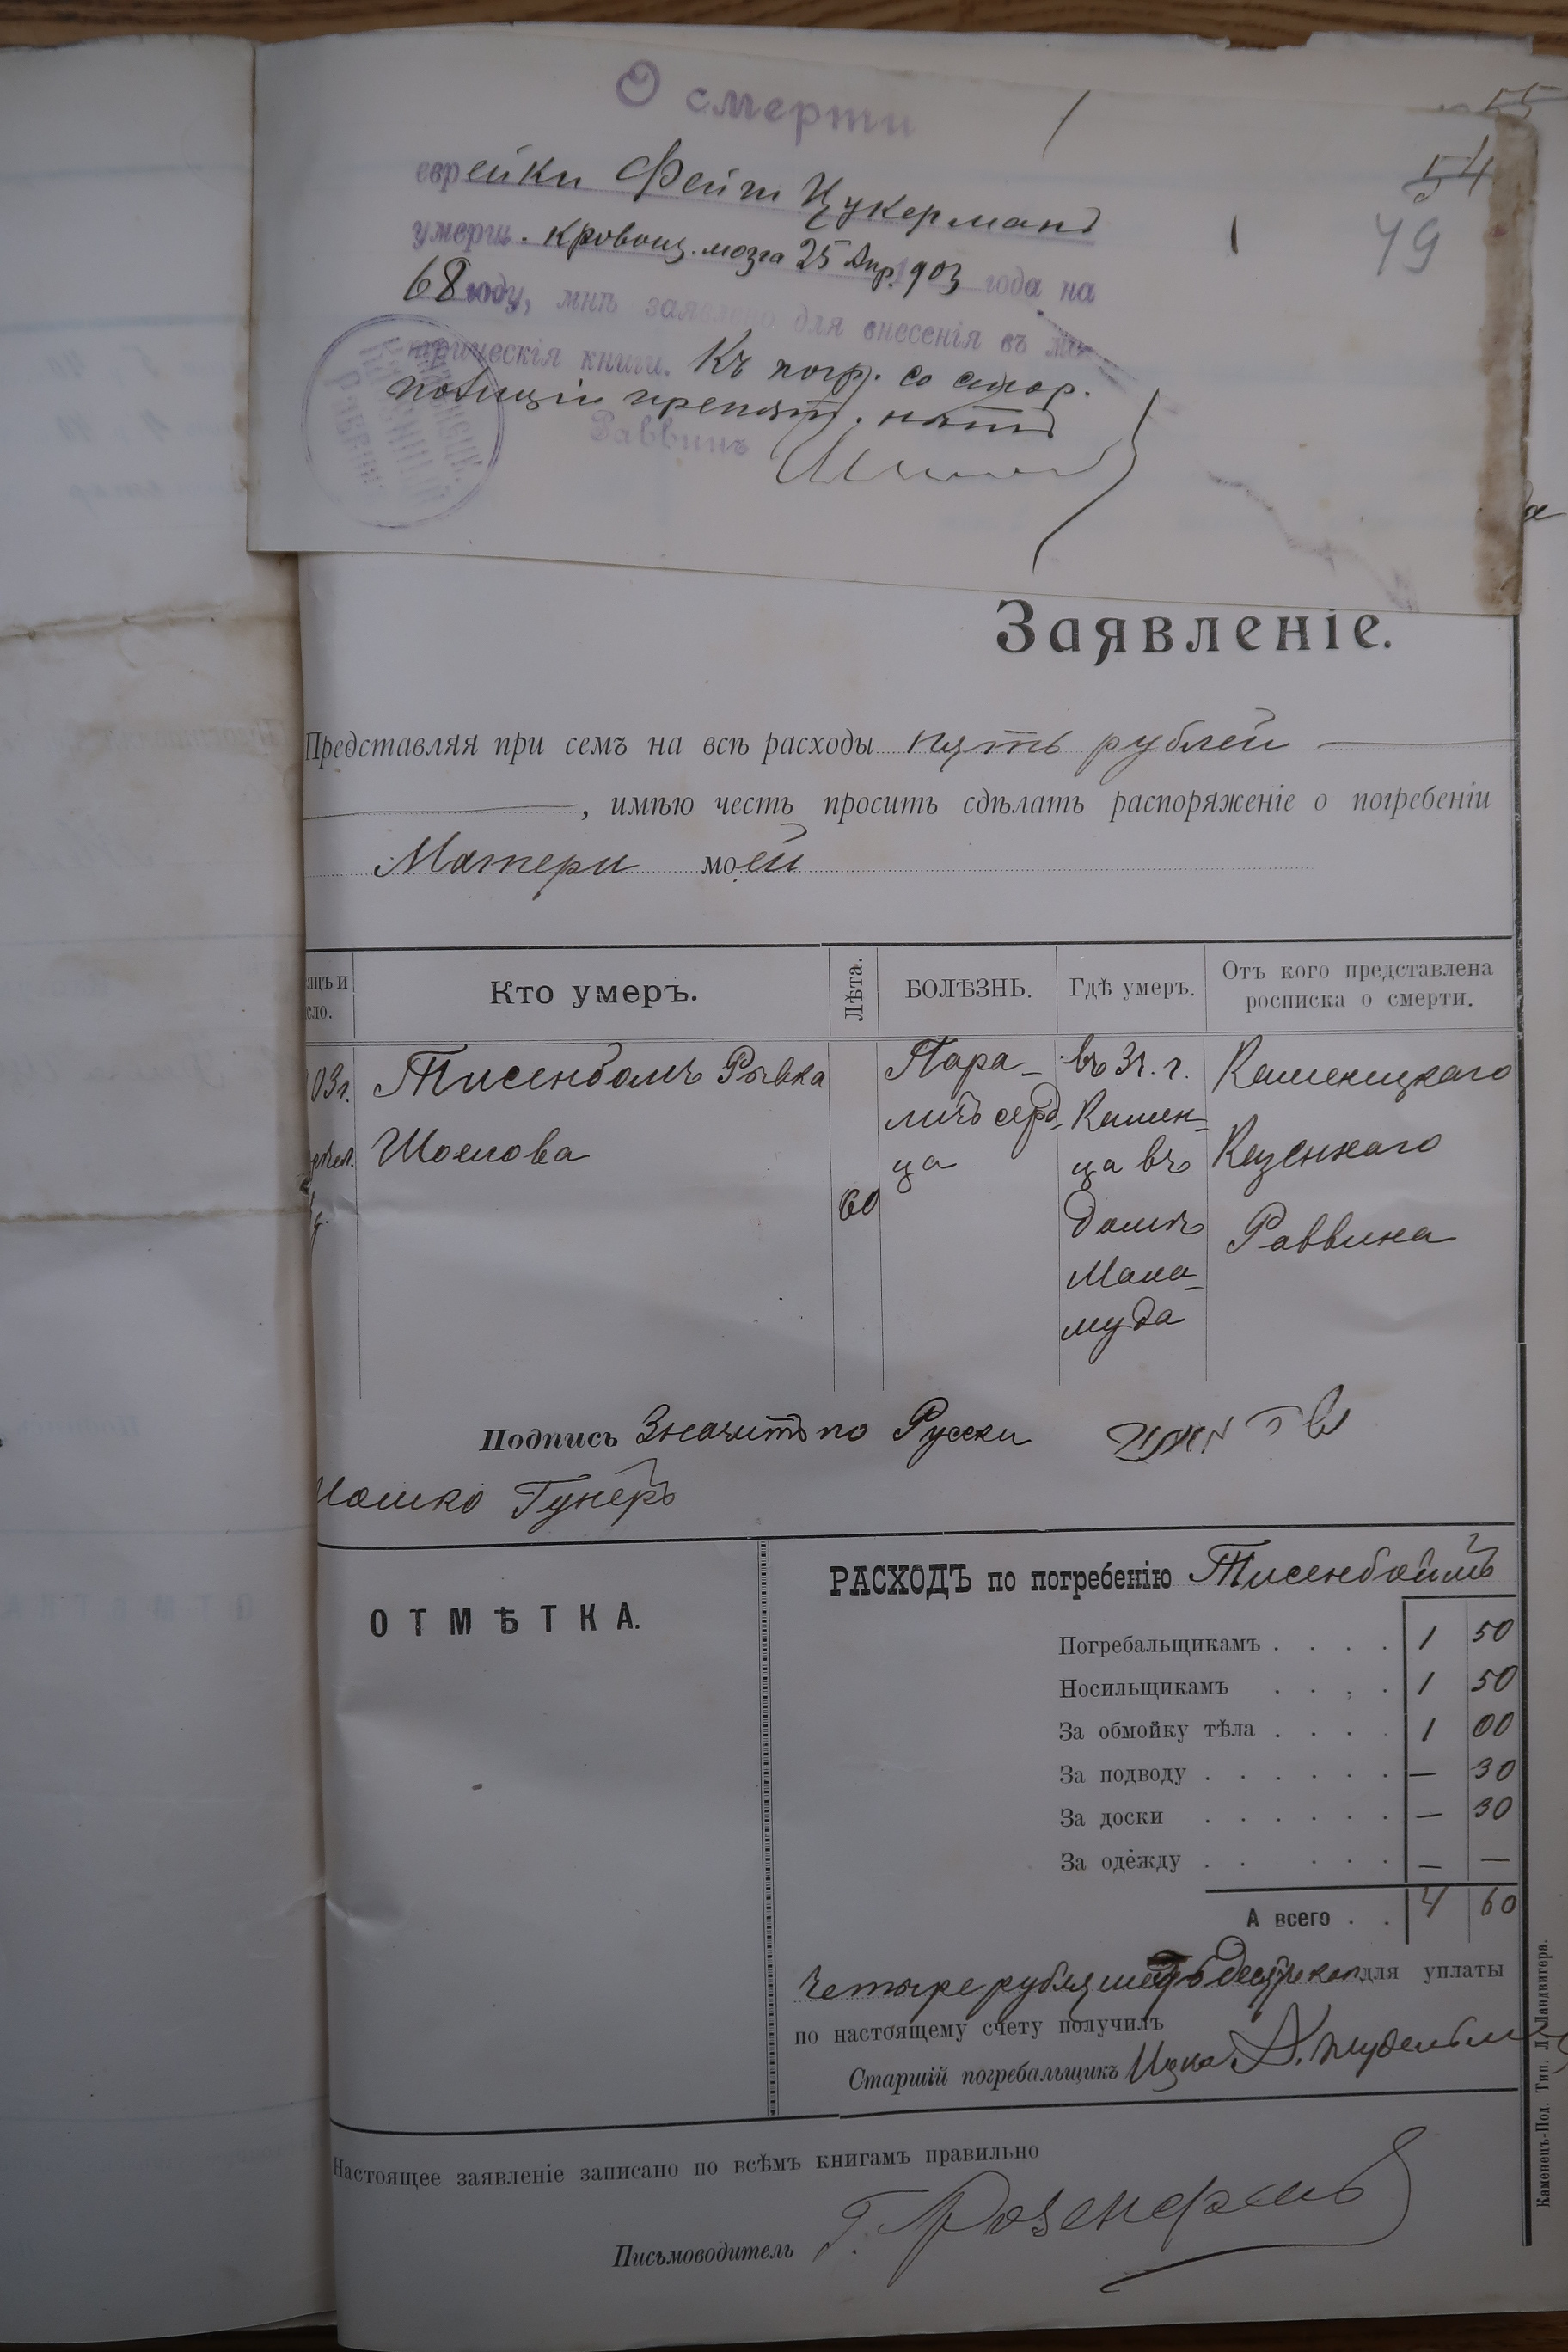 О смерти
55
54
49
еврейки Фейги Цукерманъ
умерш. кровоиз. мозга 25 Апр. 1903 года на
68 году, мнѣ заявлено для внесенія въ ме-
трическія книги. Къ погр. со стор.
полиціи препят. нѣтъ
Раввинъ
Заявленіе.
Представляя при семъ на всѣ расходы пять рублей
, имѣю честь просить сдѣлать распоряженіе о погребеніи
Матери моей
яцъ и
сло.
Кто умеръ.
Лѣта.
БОЛѢЗНЬ.
Гдѣ умеръ.
Отъ кого представлена
росписка о смерти.
03 г.
Тисенбомъ Рывка
Шоелова
60
Пара-
личъ серд-
ца
въ Зг. г.
Камен-
ца въ
домѣ
Мала-
муда
Каменецкаго
Казеннаго
Раввина
Подпись Значитъ по Русски
Мошко Гунеръ
ОТМѢТКА.
РАСХОДЪ по погребенію Тисенбоймъ
Погребальщикамъ . . . . 1 50
Носильщикамъ . . , . 1 50
За обмойку тѣла . . . . 1 00
За подводу . . . . . . — 30
За доски . . . . . . — 30
За одежду . . . . . . — —
А всего . . 4 60
Четыре рубля шестьдесятъ коп для уплаты
по настоящему счету получилъ
Старшій погребальщикъ Ицка
Настоящее заявленіе записано по всѣмъ книгамъ правильно
Письмоводитель Г. Розенфельд
Каменецъ-Под. Тип. Л. Ландвигера.